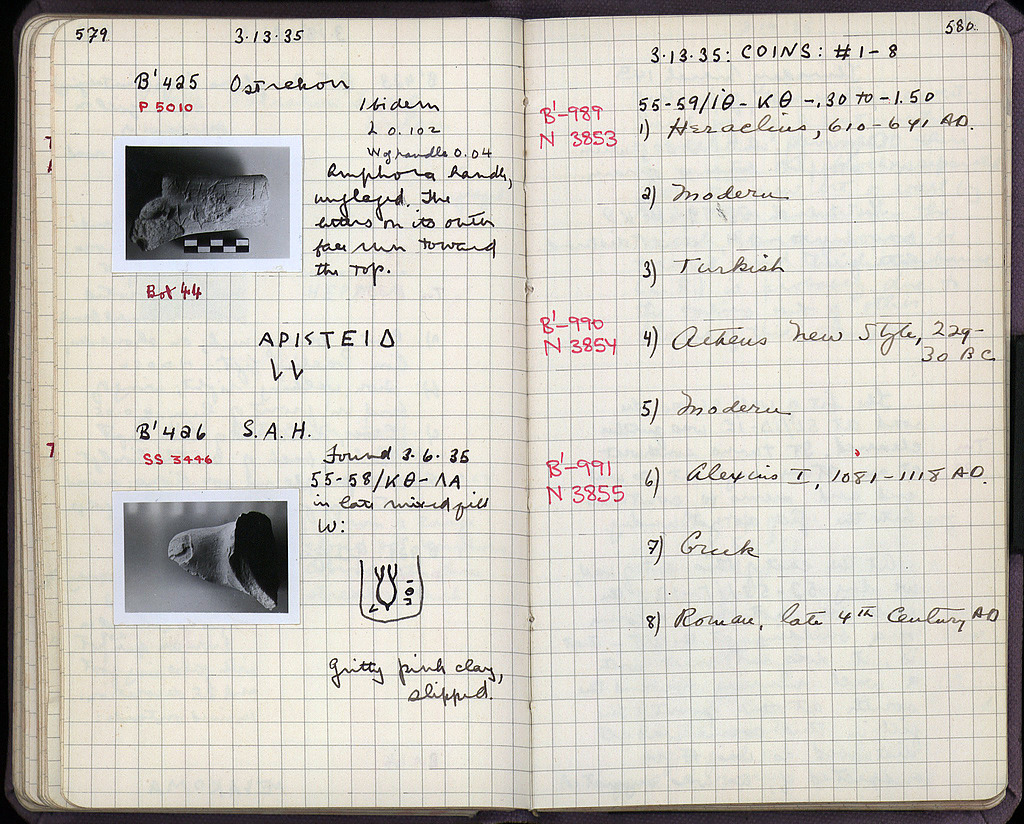 579
3·13·35
B' 425 Ostrakon
P 5010
Ibidem
L 0.102
W of handle 0.04
Amphora handle,
unglazed. The
letters on its outer
face run toward
the top.
Bot 44
ΑΡΙΣΤΕΙΔ
B' 426 S.A.H.
SS 3446
Found 3·6·35
55-58/ΚΘ-ΛΑ
in late mixed fill
W:
Gritty pink clay,
slipped.
580
3·13·35: COINS: #1-8
B'-989
N 3853
55-59/ΙΘ-ΚΘ -.30 to -1.50
1) Heraclius, 610-641 AD.
2) Modern
3) Turkish
B'-990
N 3854
4) Athens New Style, 229-
30 BC
5) Modern
B'-991
N 3855
6) Alexius I, 1081-1118 AD.
7) Greek
8) Roman, late 4th Century AD